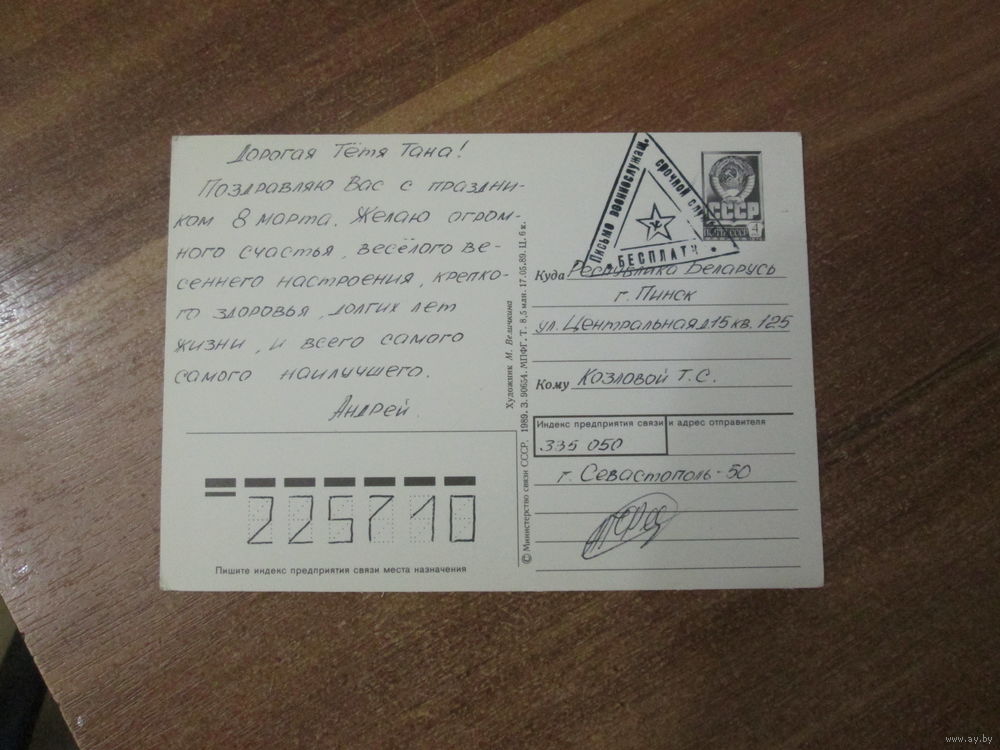 Дорогая Тётя Тана!
Поздравляю Вас с праздни-
ком 8 марта. Желаю огром-
ного счастья, весёлого ве-
сеннего настроения, крепко-
го здоровья, долгих лет
жизни, и всего самого
самого наилучшего.
Андрей.
225710
Пишите индекс предприятия связи места назначения
© Министерство связи СССР. 1989. З. 90654. МПФГ. Т. 8,5 млн. 17.05.89. Ц. 6 к.
Художник М. Величкина
Письмо военнослужащ.
срочной служ
БЕСПЛАТН
СССР
ПОЧТА СССР
4
Куда Республика Беларусь
г. Пинск
ул. Центральная д 15 кв. 125
Кому Козловой Т. С.
Индекс предприятия связи и адрес отправителя
335 050
г. Севастополь-50
www.ay.by